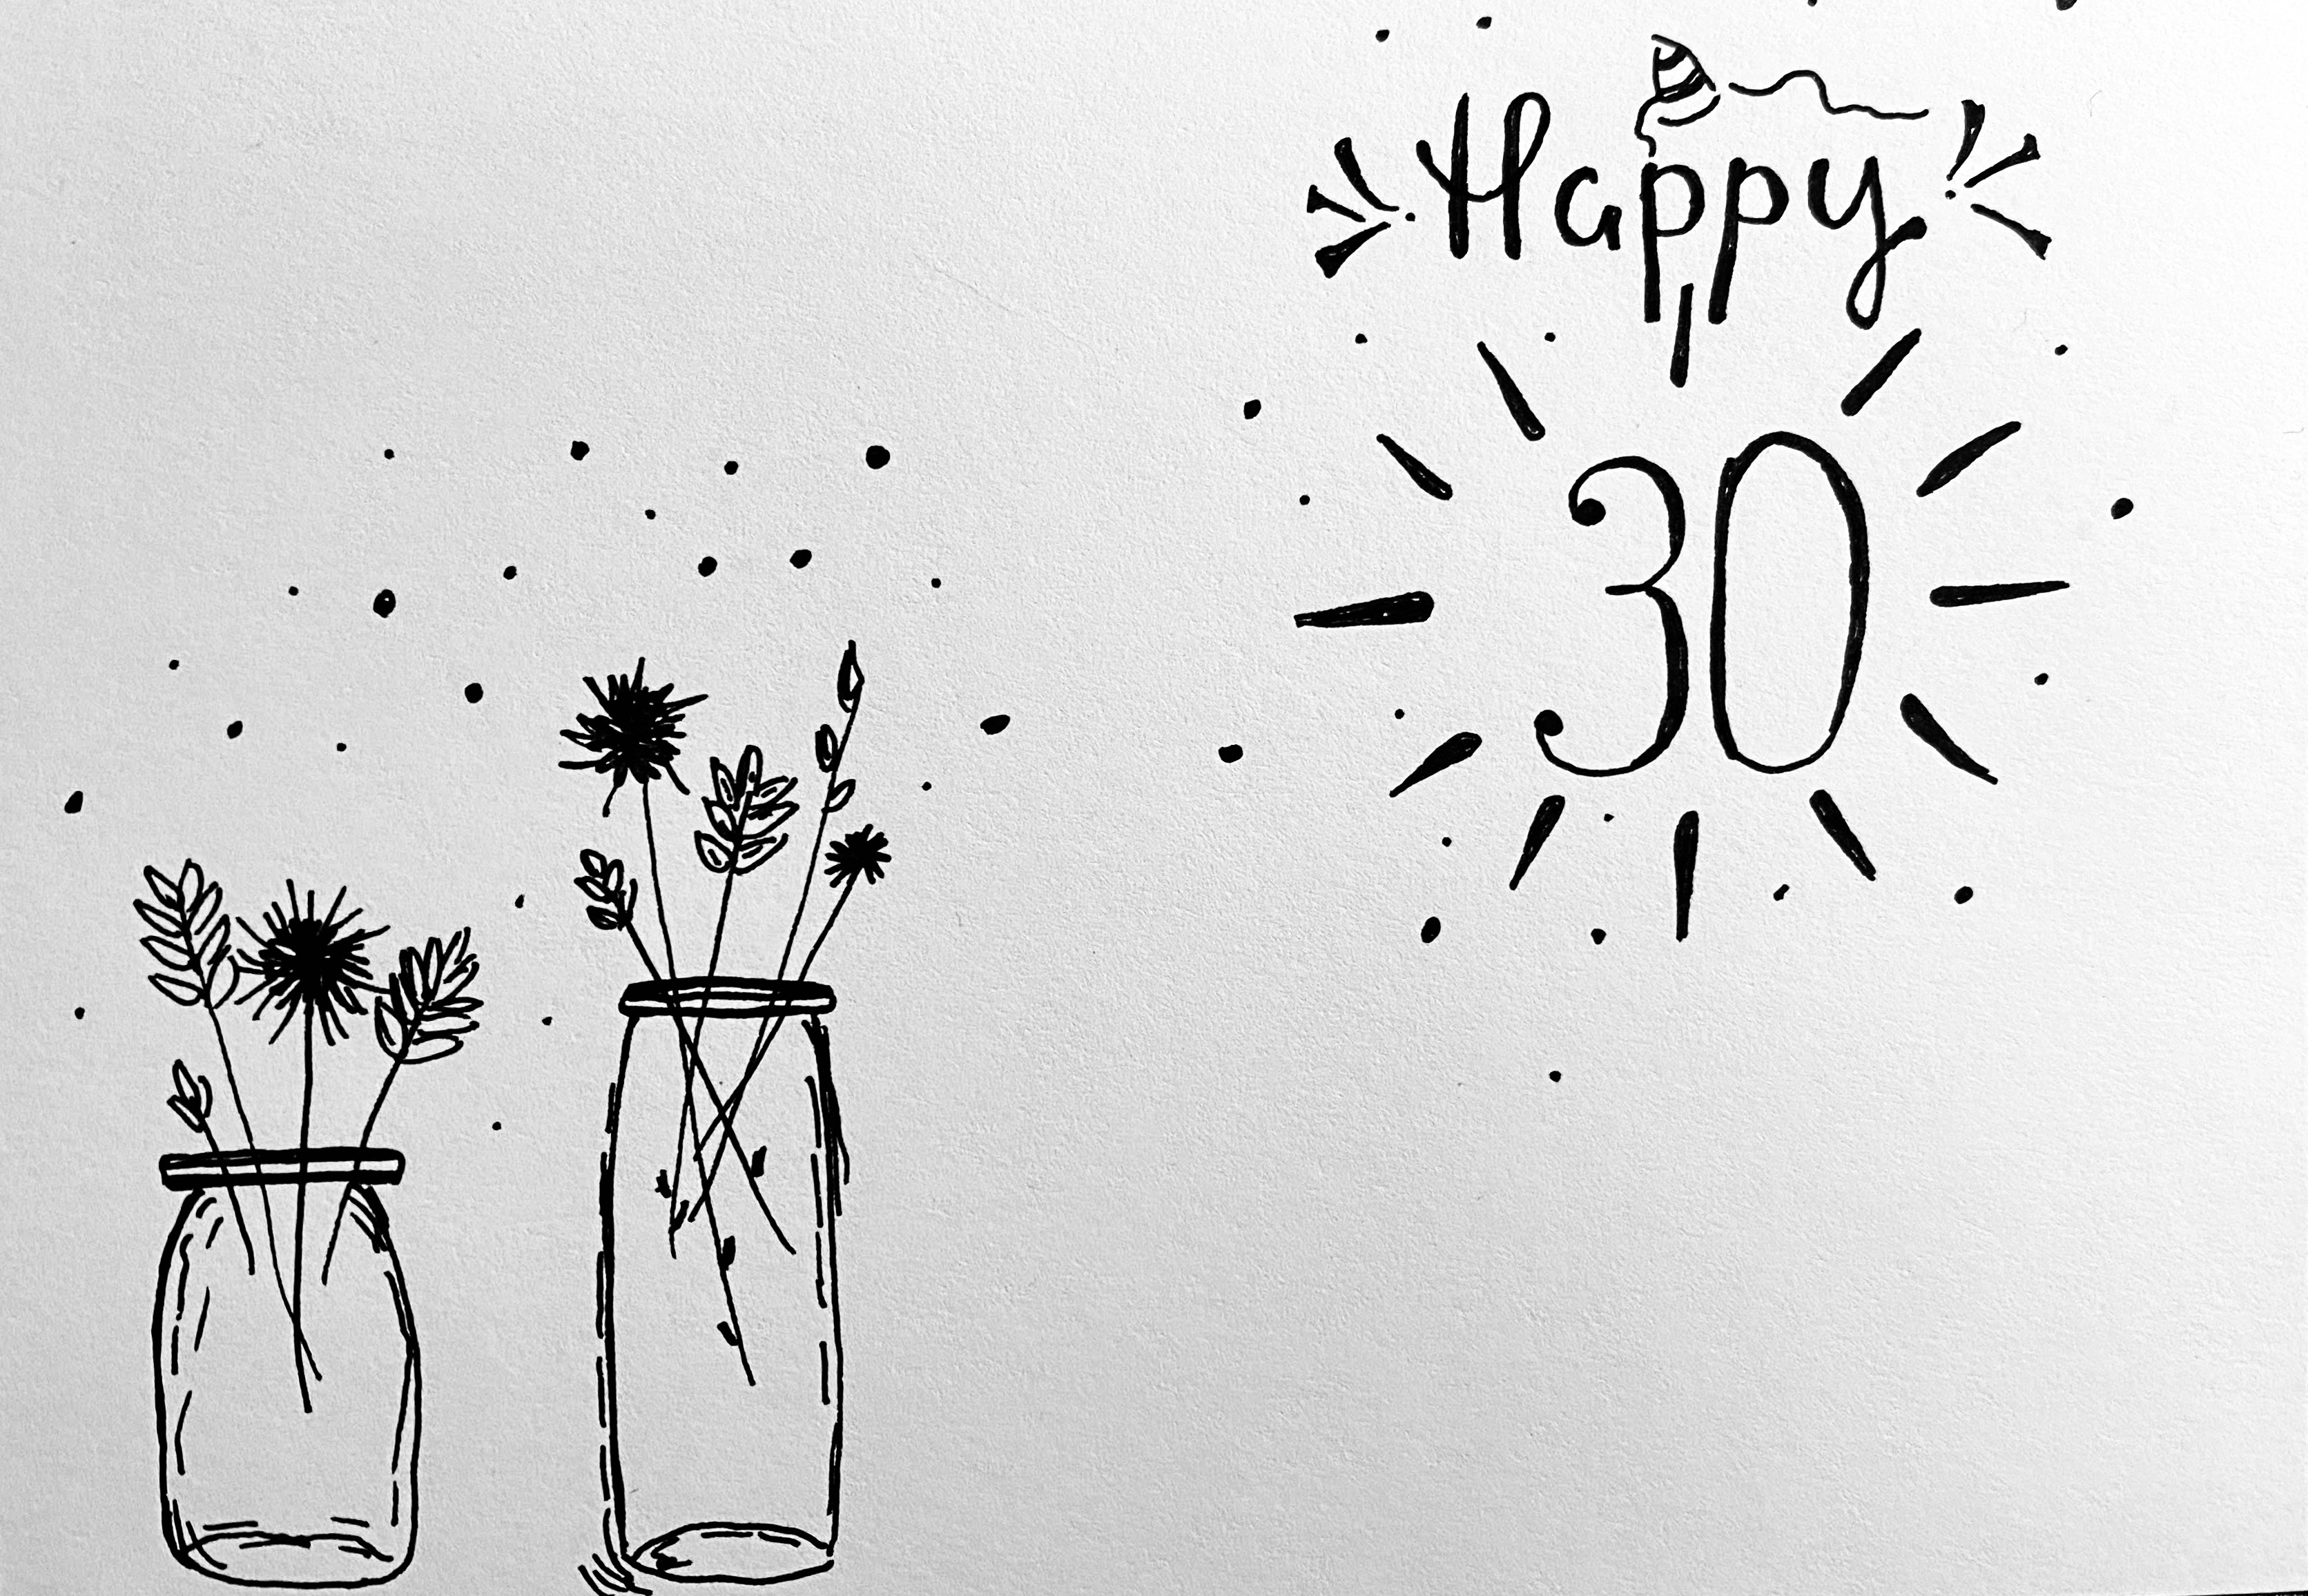 Happy
30